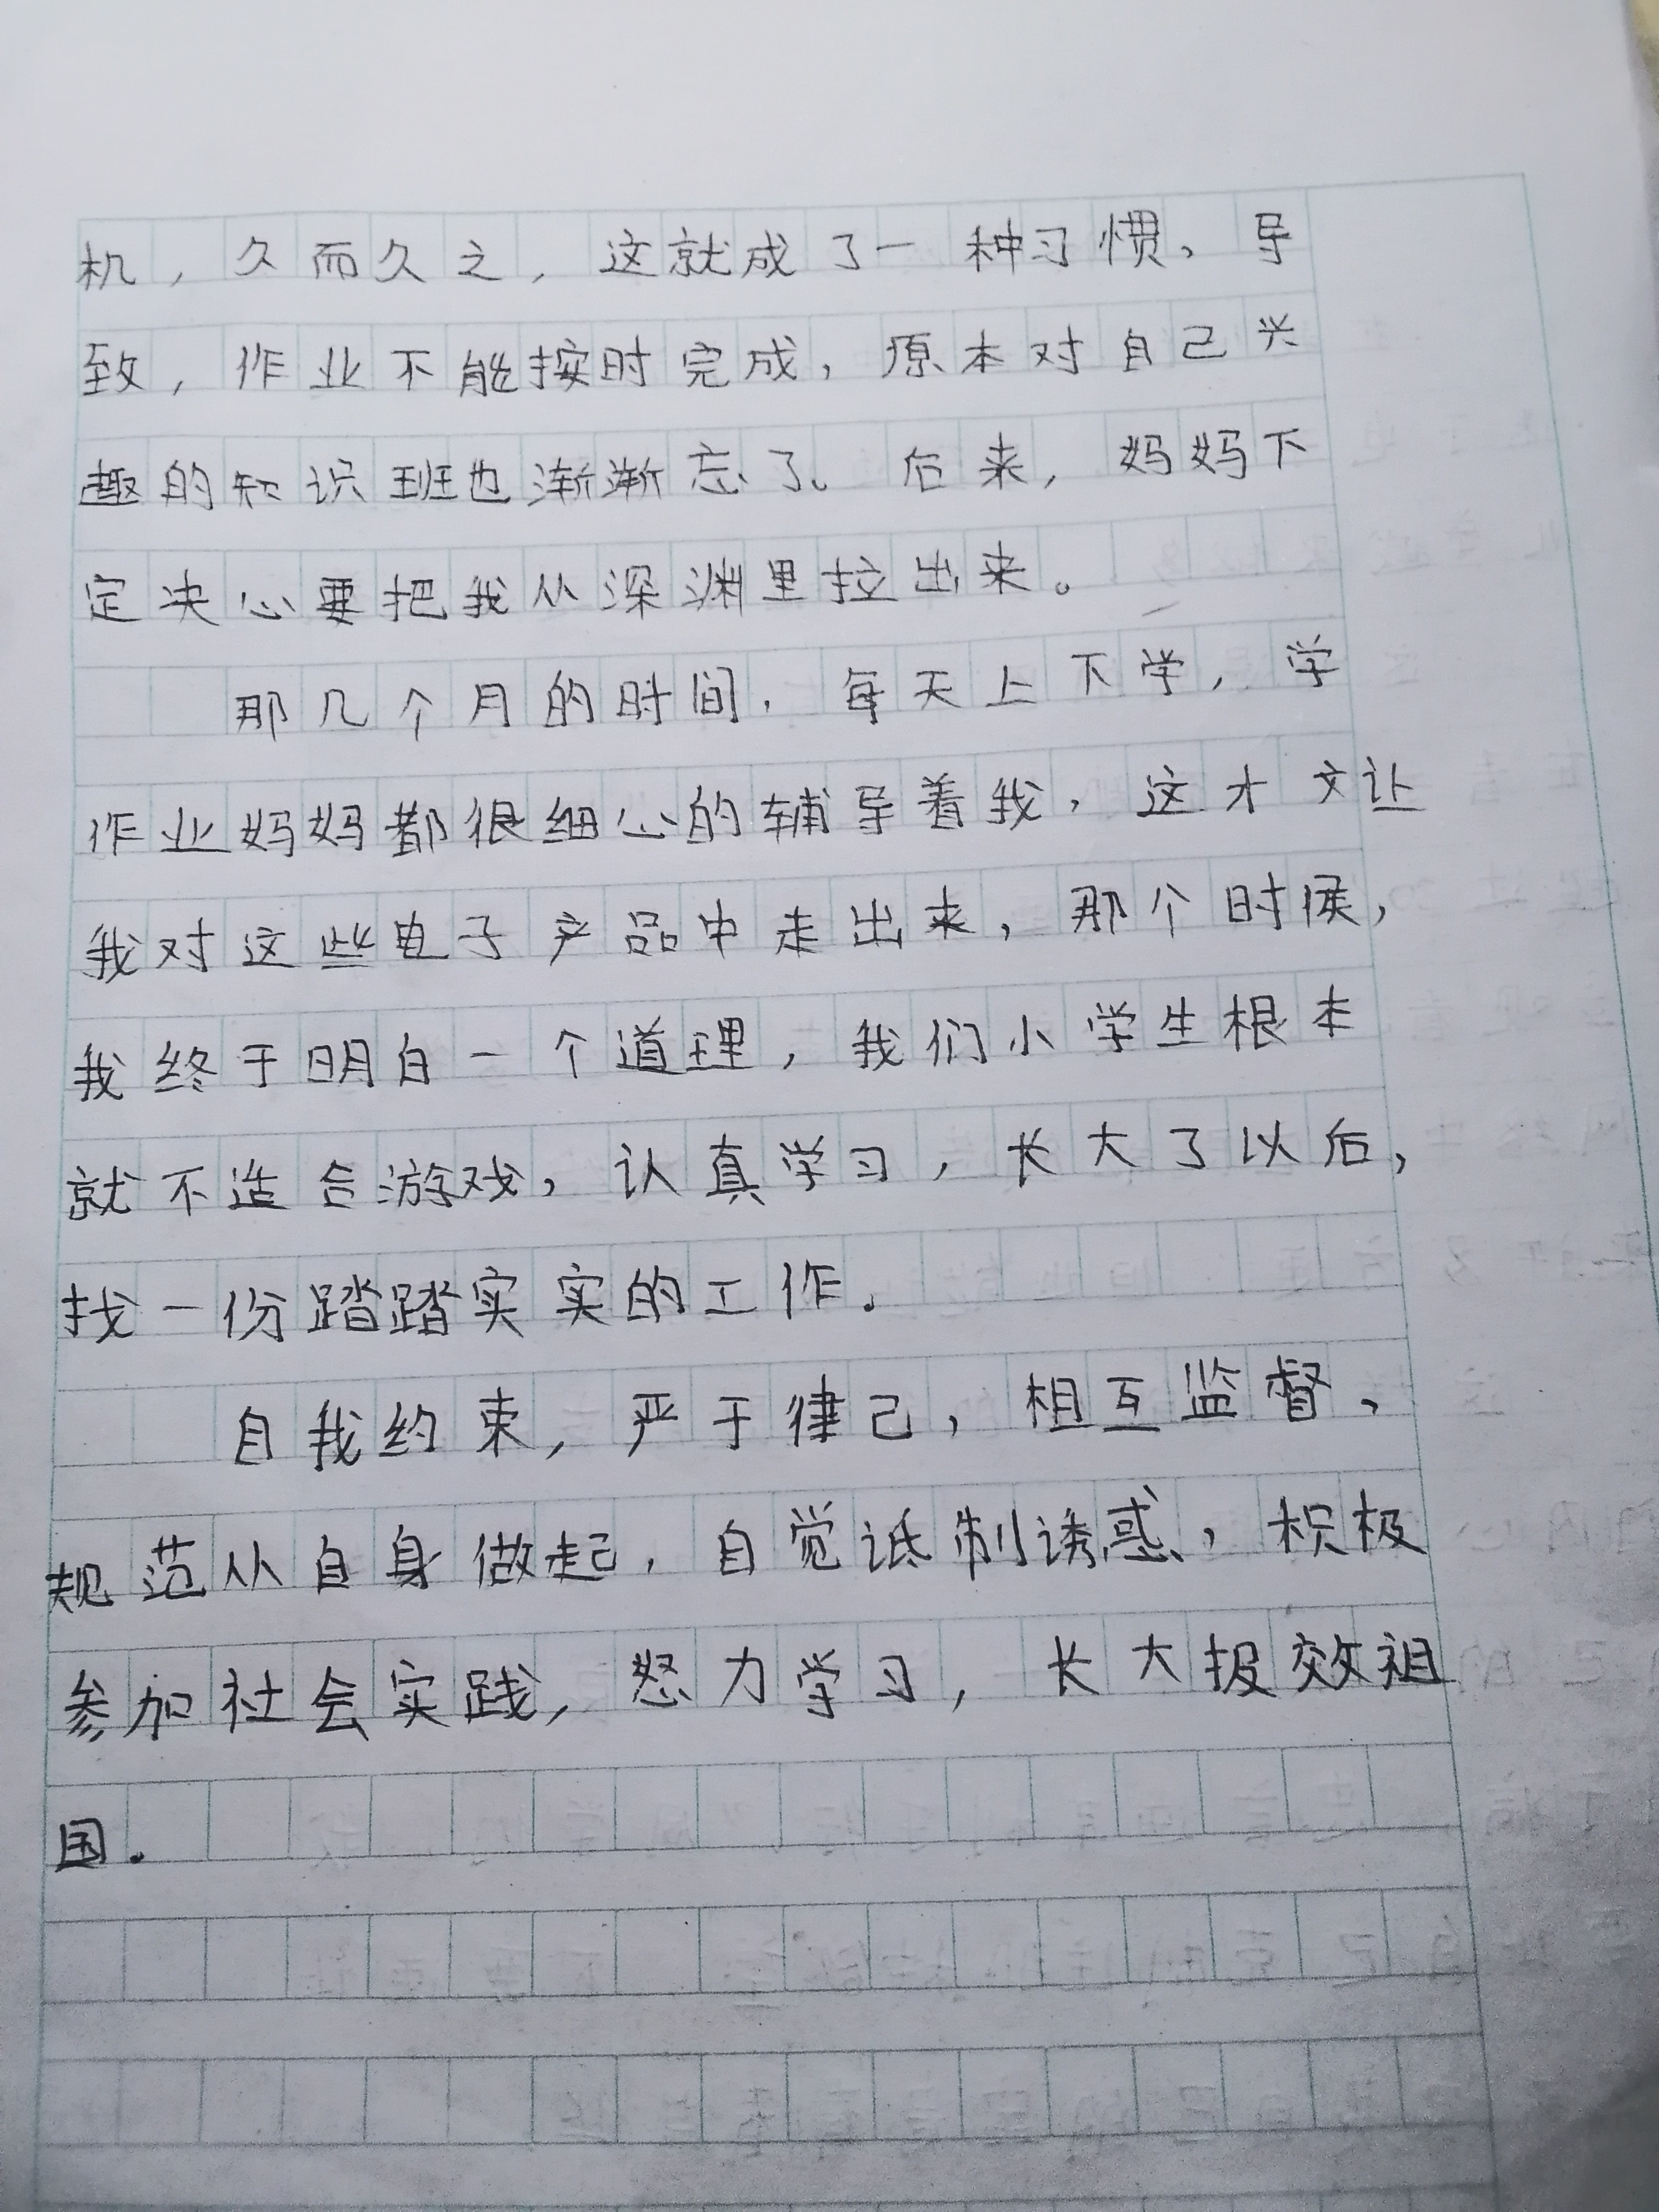 机，久而久之，这就成了一种习惯，导
致，作业不能按时完成，原本对自己兴
趣的知识班也渐渐忘了。后来，妈妈下
定决心要把我从深渊里拉出来。
那几个月的时间，每天上下学，学
作业妈妈都很细心的辅导着我，这才文让
我对这些电子产品中走出来，那个时候，
我终于明白一个道理，我们小学生根本
就不造合游戏，认真学习，长大了以后，
找一份踏踏实实的工作.
自我约束，严于律己，相互监督，
规范从自身做起，自觉诋制诱惑，积极
参加社会实践，怒力学习，长大报效祖
国.